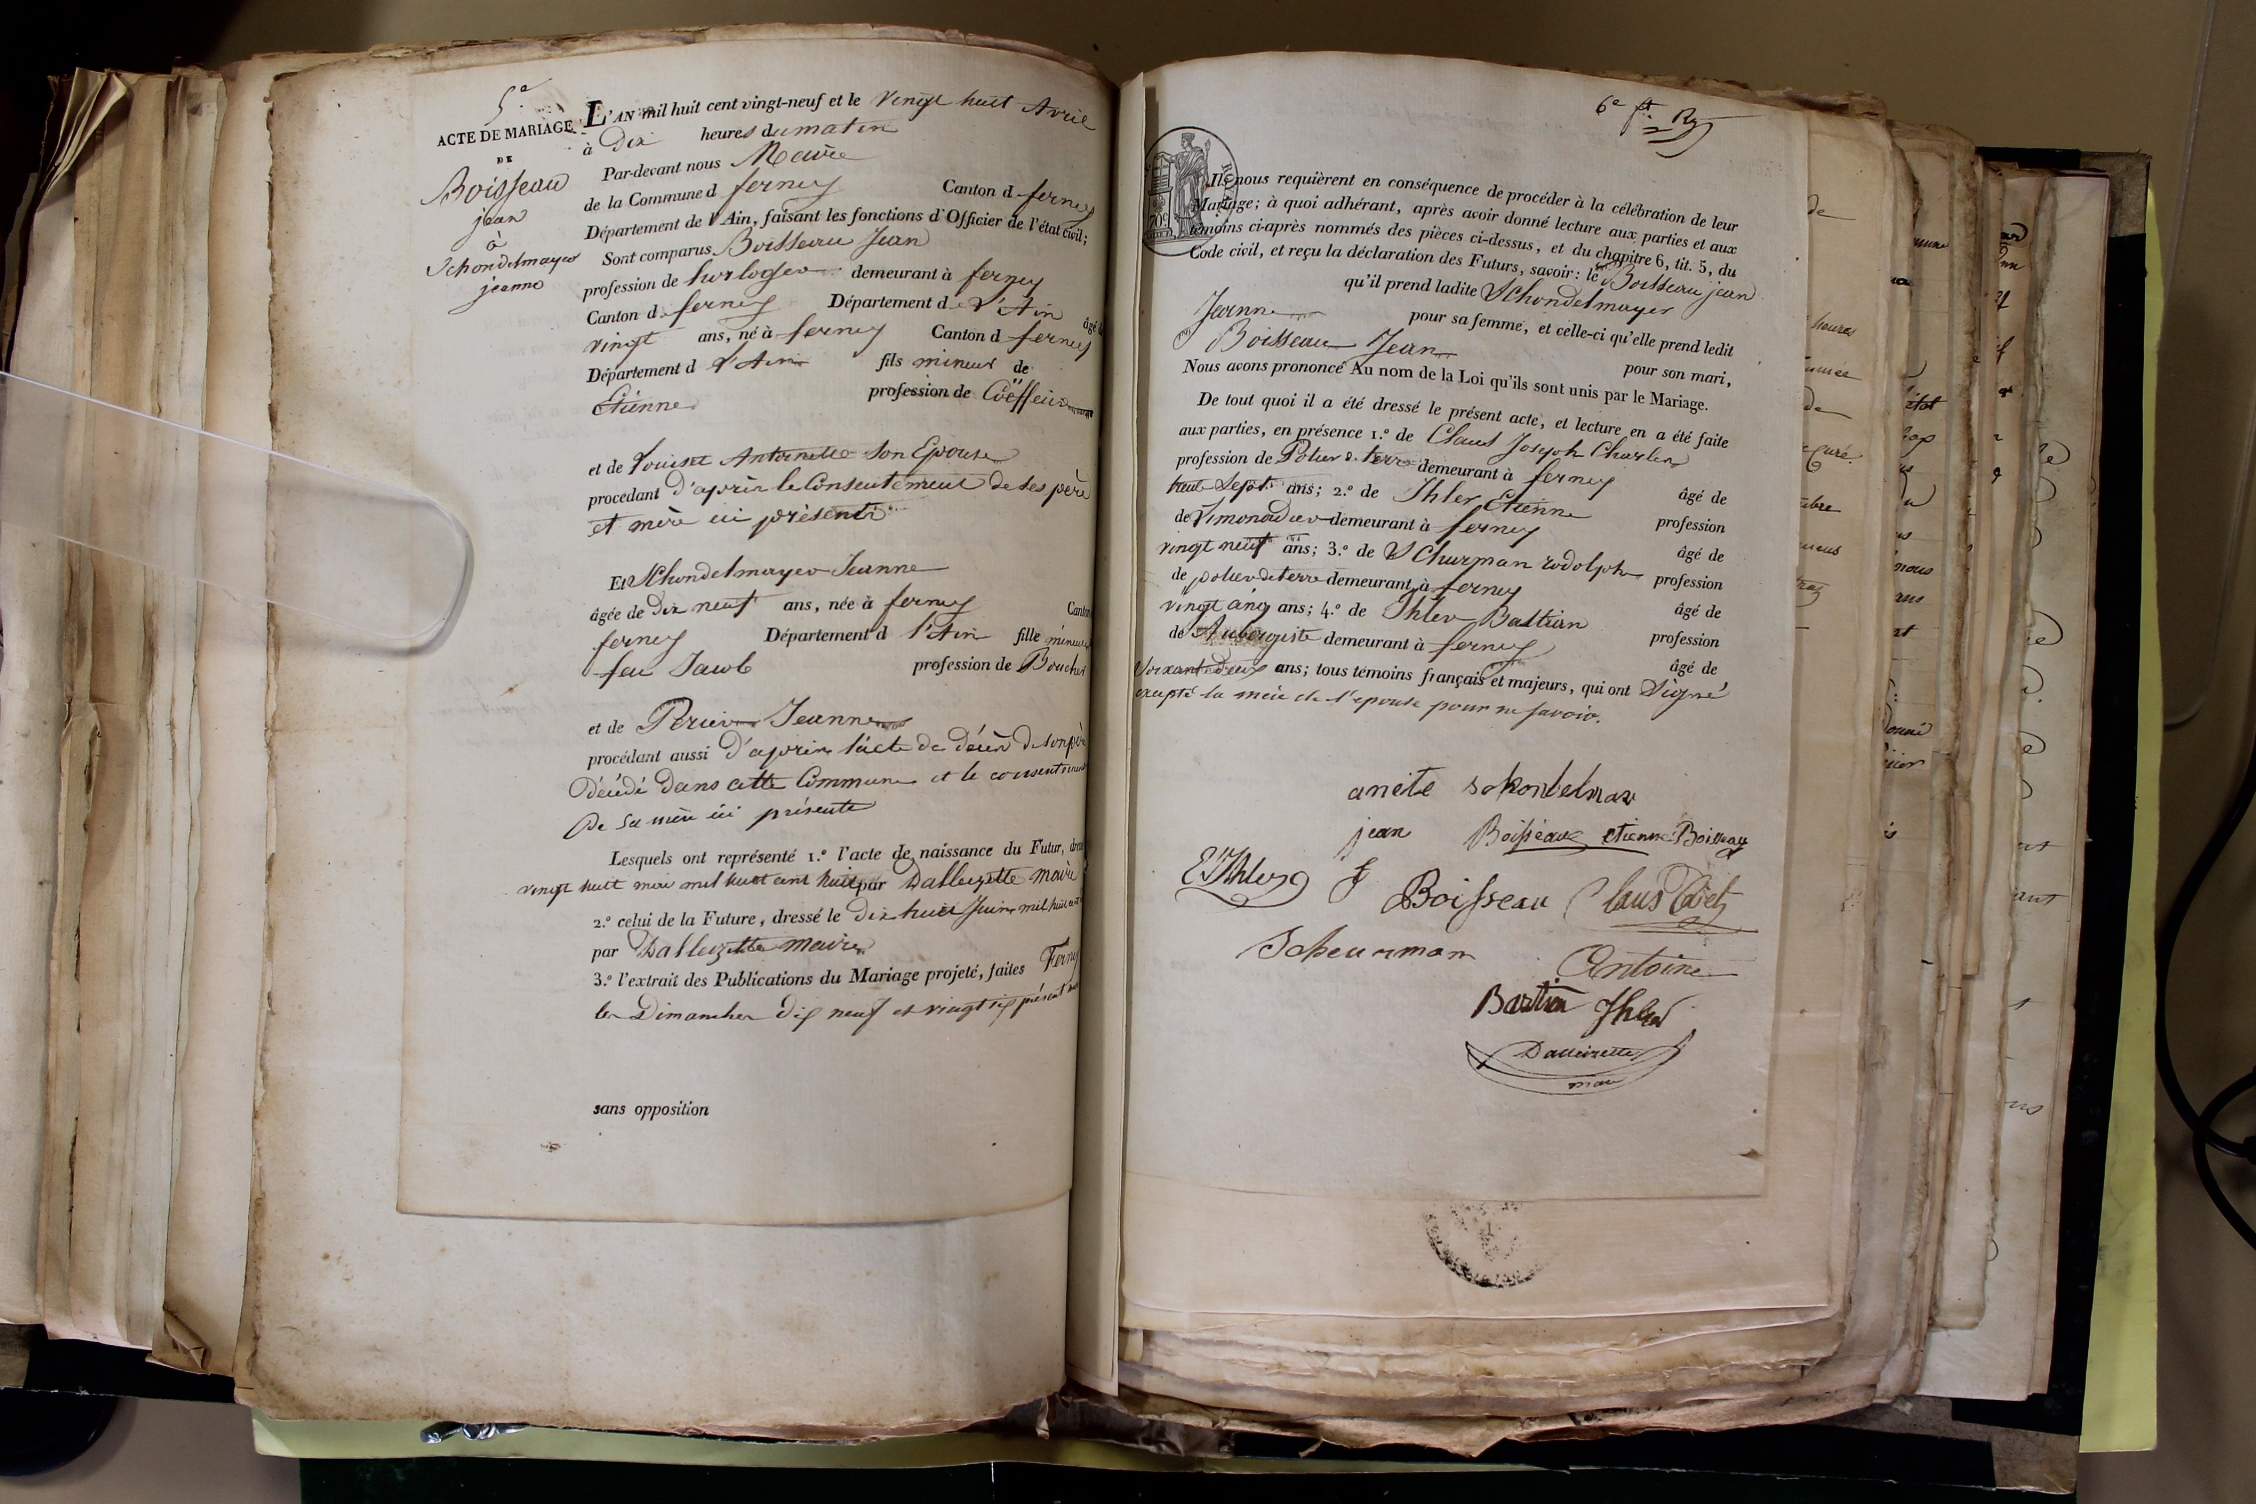 5.e
ACTE DE MARIAGE
DE
Boisseau
jean
à
Schondelmayer
jeanne
L'AN mil huit cent vingt-neuf et le vingt huit Avril
à Dix heures du matin
Par-devant nous Maire
de la Commune d ferney Canton d ferney
Département de l'Ain, faisant les fonctions d'Officier de l'état civil;
Sont comparus Boisseau Jean
profession de horloger demeurant à ferney
Canton d ferney Département d L'Ain âgé d
vingt ans, né à ferney Canton d ferney
Département d L'Ain fils mineur de
Etienne profession de Coëffeur
et de Antoinette son Epouse
procédant d'après le Consentement de ses père
et mère ici présents
Et Schondelmayer Jeanne
âgée de dix neuf ans, née à ferney Canton
ferney Département d l'Ain fille mineure
feu Jacob profession de Boucher
et de Perier Jeanne
procédant aussi D'après l'acte de décès de son père
Décédé Dans cette Commune et le consentement
De sa mère ici présente
Lesquels ont représenté 1.º l'acte de naissance du Futur,
vingt huit mai mil huit cent huit par Dalleizette maire
2.º celui de la Future, dressé le dix huit Juin mil huit cent
par Dalleizette maire
3.º l'extrait des Publications du Mariage projeté, faites Ferney
les Dimanches dix neuf et vingt six présent mois
sans opposition
6e ft.
Ils nous requièrent en conséquence de procéder à la célébration de leur
Mariage; à quoi adhérant, après avoir donné lecture aux parties et aux
témoins ci-après nommés des pièces ci-dessus, et du chapitre 6, tit. 5, du
Code civil, et reçu la déclaration des Futurs, savoir: le Boisseau jean
qu'il prend ladite Schondelmayer
Jeanne pour sa femme, et celle-ci qu'elle prend ledit
Boisseau Jean pour son mari,
Nous avons prononcé Au nom de la Loi qu'ils sont unis par le Mariage.
De tout quoi il a été dressé le présent acte, et lecture en a été faite
aux parties, en présence 1.º de Claus Joseph Charles
profession de Potier de terre demeurant à ferney âgé de
trente Sept ans; 2.º de Ihler Etienne profession
de Limonadier demeurant à ferney âgé de
vingt neuf ans; 3.º de Schurman rodolphe profession
de potier de terre demeurant à ferney âgé de
vingt cinq ans; 4.º de Ihler Bastian profession
de Aubergiste demeurant à ferney âgé de
Soixante Deux ans; tous témoins français et majeurs, qui ont Signé
excepté la mère de l'epouse pour ne savoir.
anete schondelmar
jean Boisseau etienne Boisseau
E. Ihler J Boisseau Claus
Scheurman Antoine
Bastian Ihler
Dalleizette
maire